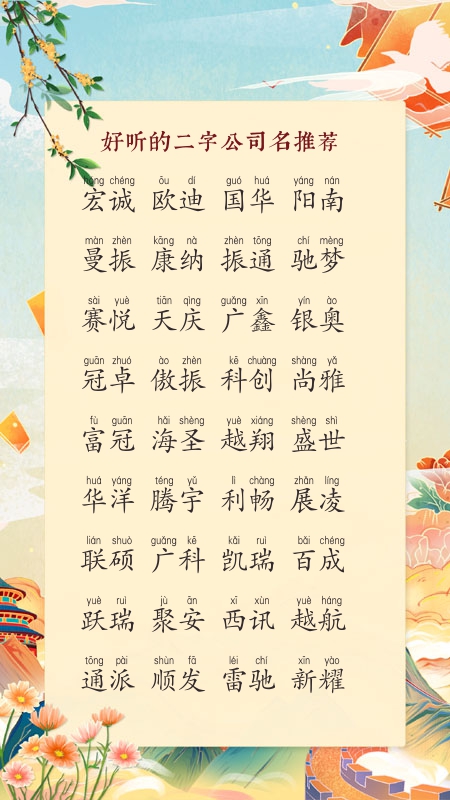 好听的二字公司名推荐
hóng chéng ōu dí guó huá yáng nán
宏诚 欧迪 国华 阳南
màn zhèn kāng nà zhèn tōng chí mèng
曼振 康纳 振通 驰梦
sài yuè tiān qìng guǎng xīn yín ào
赛悦 天庆 广鑫 银奥
guān zhuó ào zhèn kē chuàng shàng yǎ
冠卓 傲振 科创 尚雅
fù guān hǎi shèng yuè xiáng shèng shì
富冠 海圣 越翔 盛世
huá yáng téng yǔ lì chàng zhǎn líng
华洋 腾宇 利畅 展凌
lián shuò guǎng kē kǎi ruì bǎi chéng
联硕 广科 凯瑞 百成
yuè ruì jù ān xī xùn yuè háng
跃瑞 聚安 西讯 越航
tōng pài shùn fā léi chí xīn yào
通派 顺发 雷驰 新耀